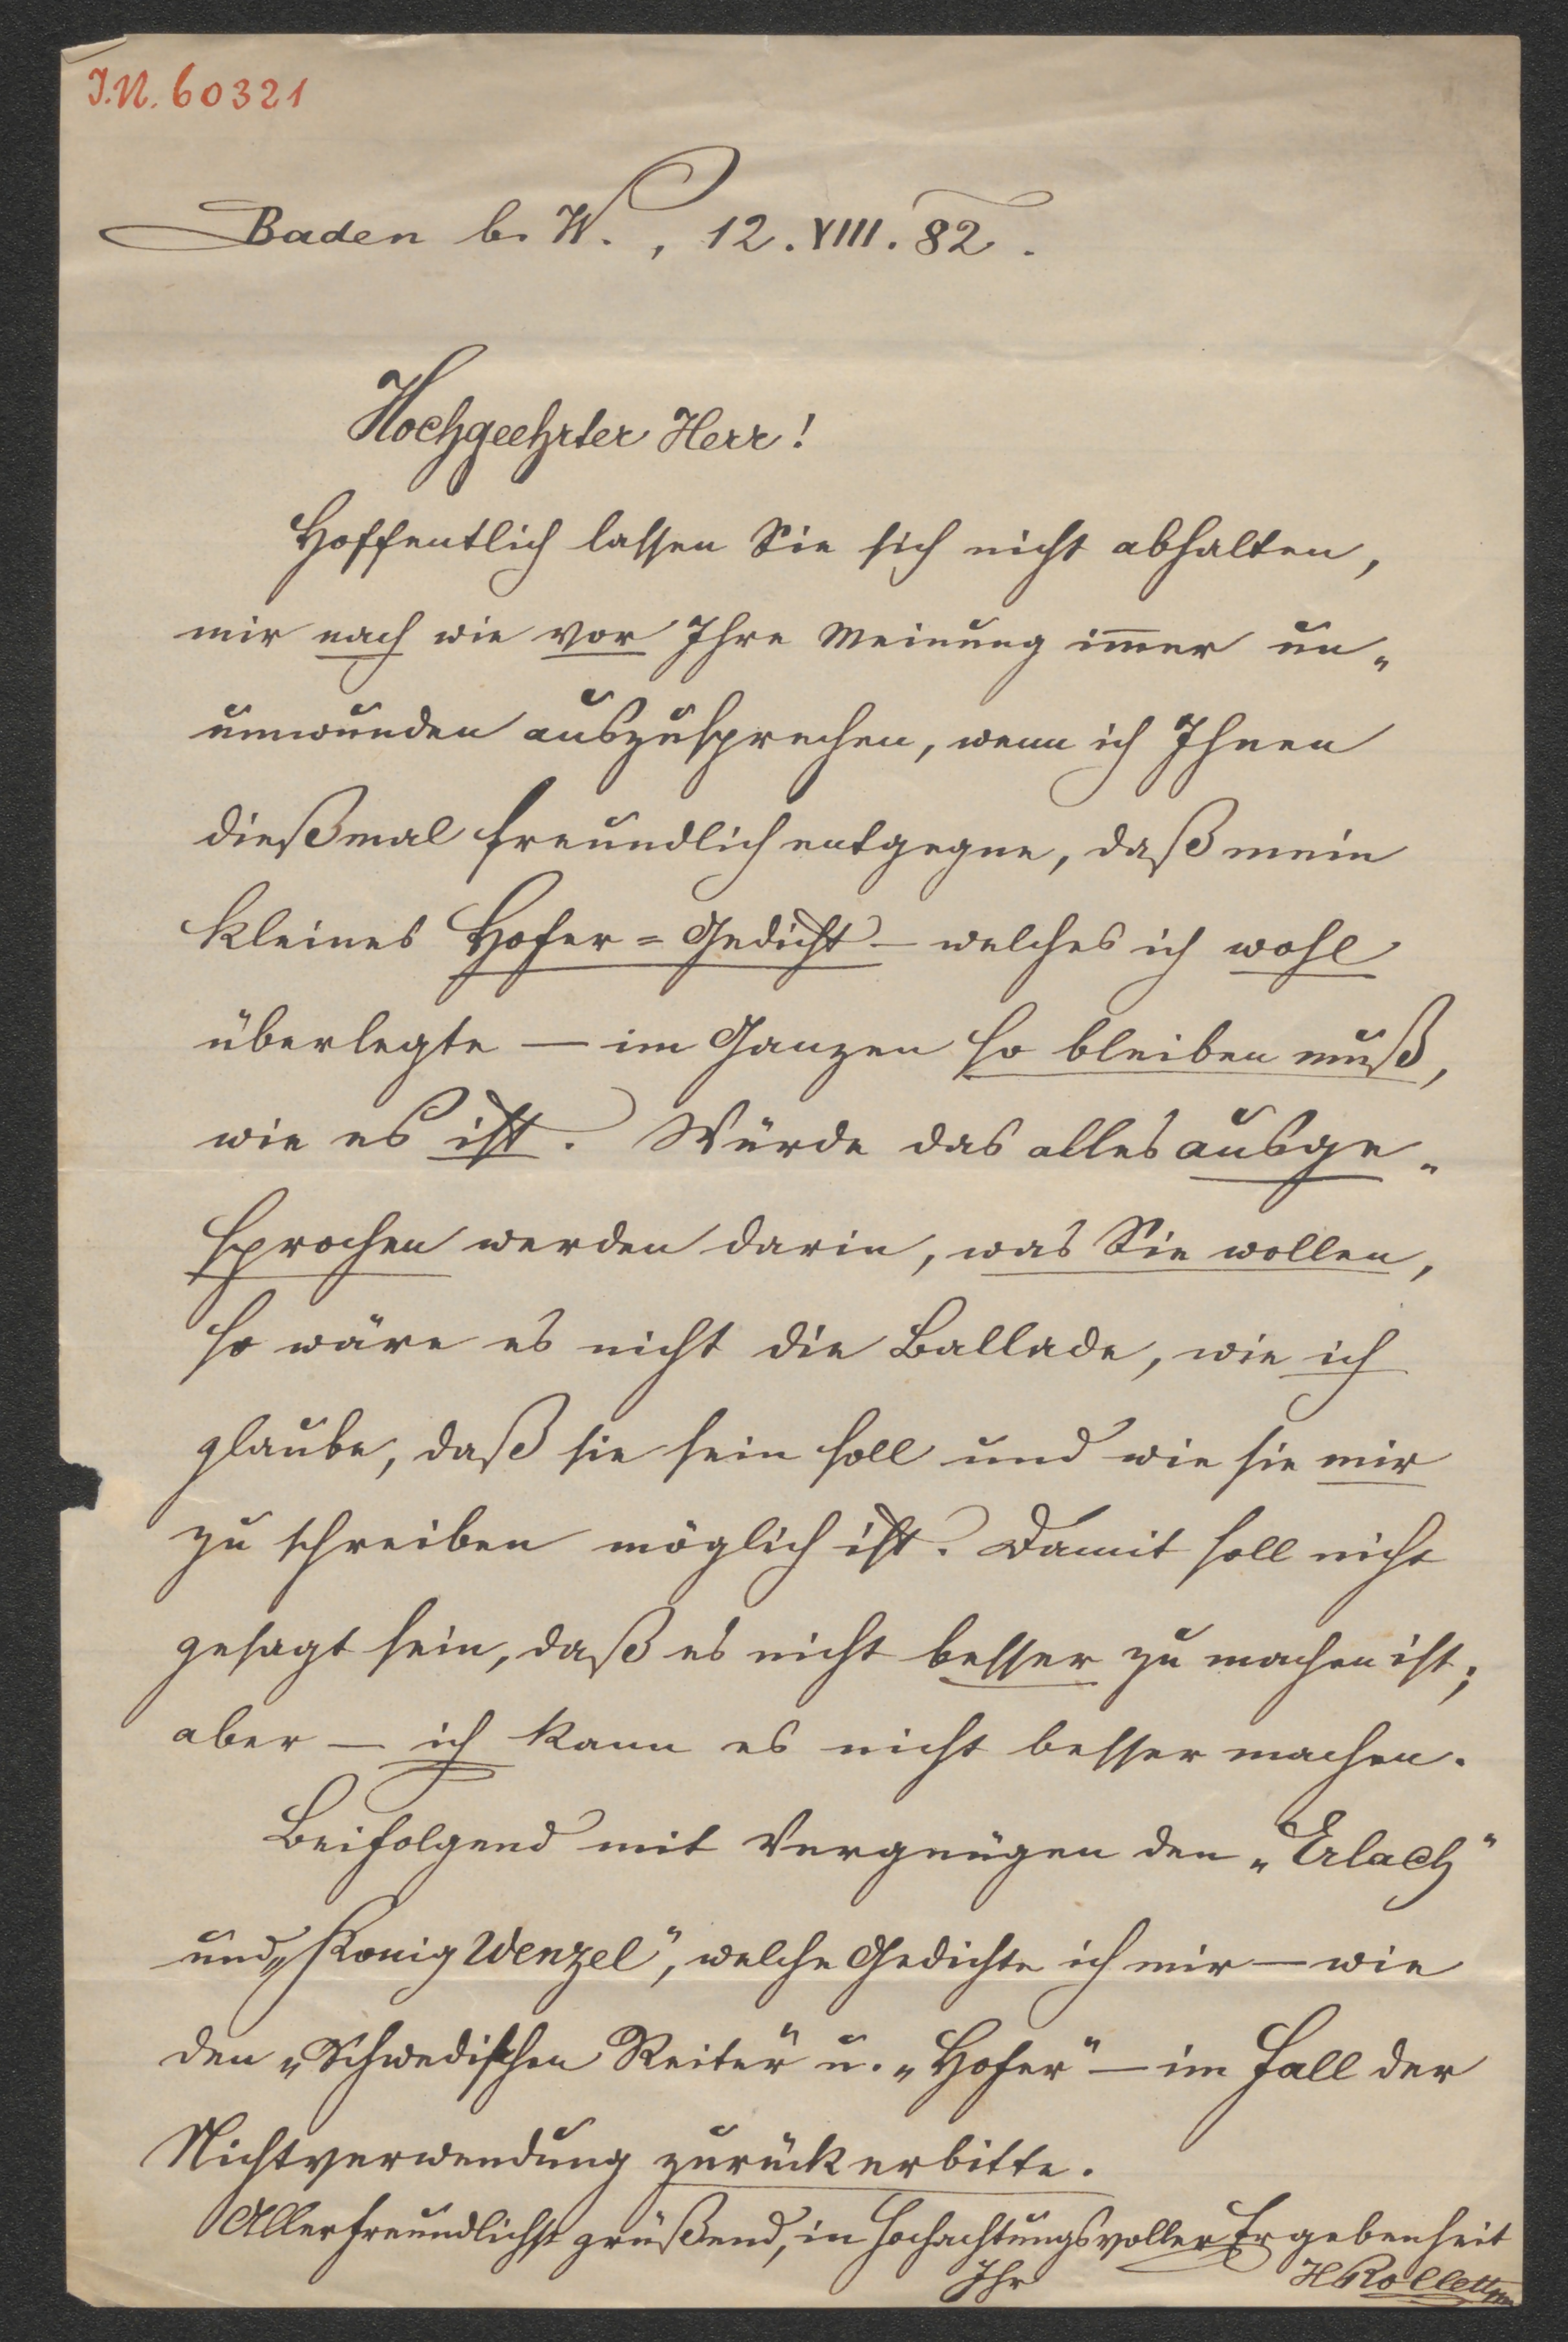 I.N. 60321
Baden b. W., 12. VIII. 82.
Hochgeehrter Herr!
Hoffentlich lassen Sie sich nicht abhalten,
mir nach wie vor Ihre Meinung im̅er un„
umwunden auszusprechen, wenn ich Ihnen
dießmal freundlich entgegne, daß mein
kleines Hofer=Gedicht – welches ich wohl
überlegte — im Ganzen so bleiben muß,
wie es ist. Würde das alles ausge„
sprochen werden darin, was Sie wollen,
so wäre es nicht die Ballade, wie ich
glaube, daß sie sein soll und wie sie mir
zu schreiben möglich ist. Damit soll nicht
gesagt sein, daß es nicht besser zu machen ist;
aber — ich kann es nicht besser machen.
Beifolgend mit Vergnügen den „Erlach“
und „König Wenzel“, welche Gedichte ich mir — wie
den „Schwedischen Reiter“ u. „Hofer“ — im Fall der
Nichtverwendung zurück erbitte.
Allerfreundlichst grüßend, in hochachtungsvoller Ergebenheit
Ihr HRollett